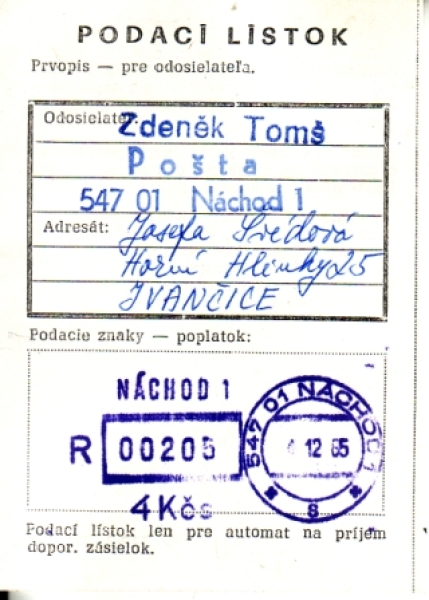 PODACÍ LÍSTOK
Prvopis — pre odosielateľa.
Odosielateľ:
Zdeněk Tomš
Pošta
547 01 Náchod 1
Adresát: Josefa Švédová
Horní Hlinky 25
IVANČICE
Podacie znaky — poplatok:
NÁCHOD 1
R 00205
4 Kčs
547 01 NÁCHOD 1
12 85
s
Podací lístok len pre automat na príjem
dopor. zásielok.